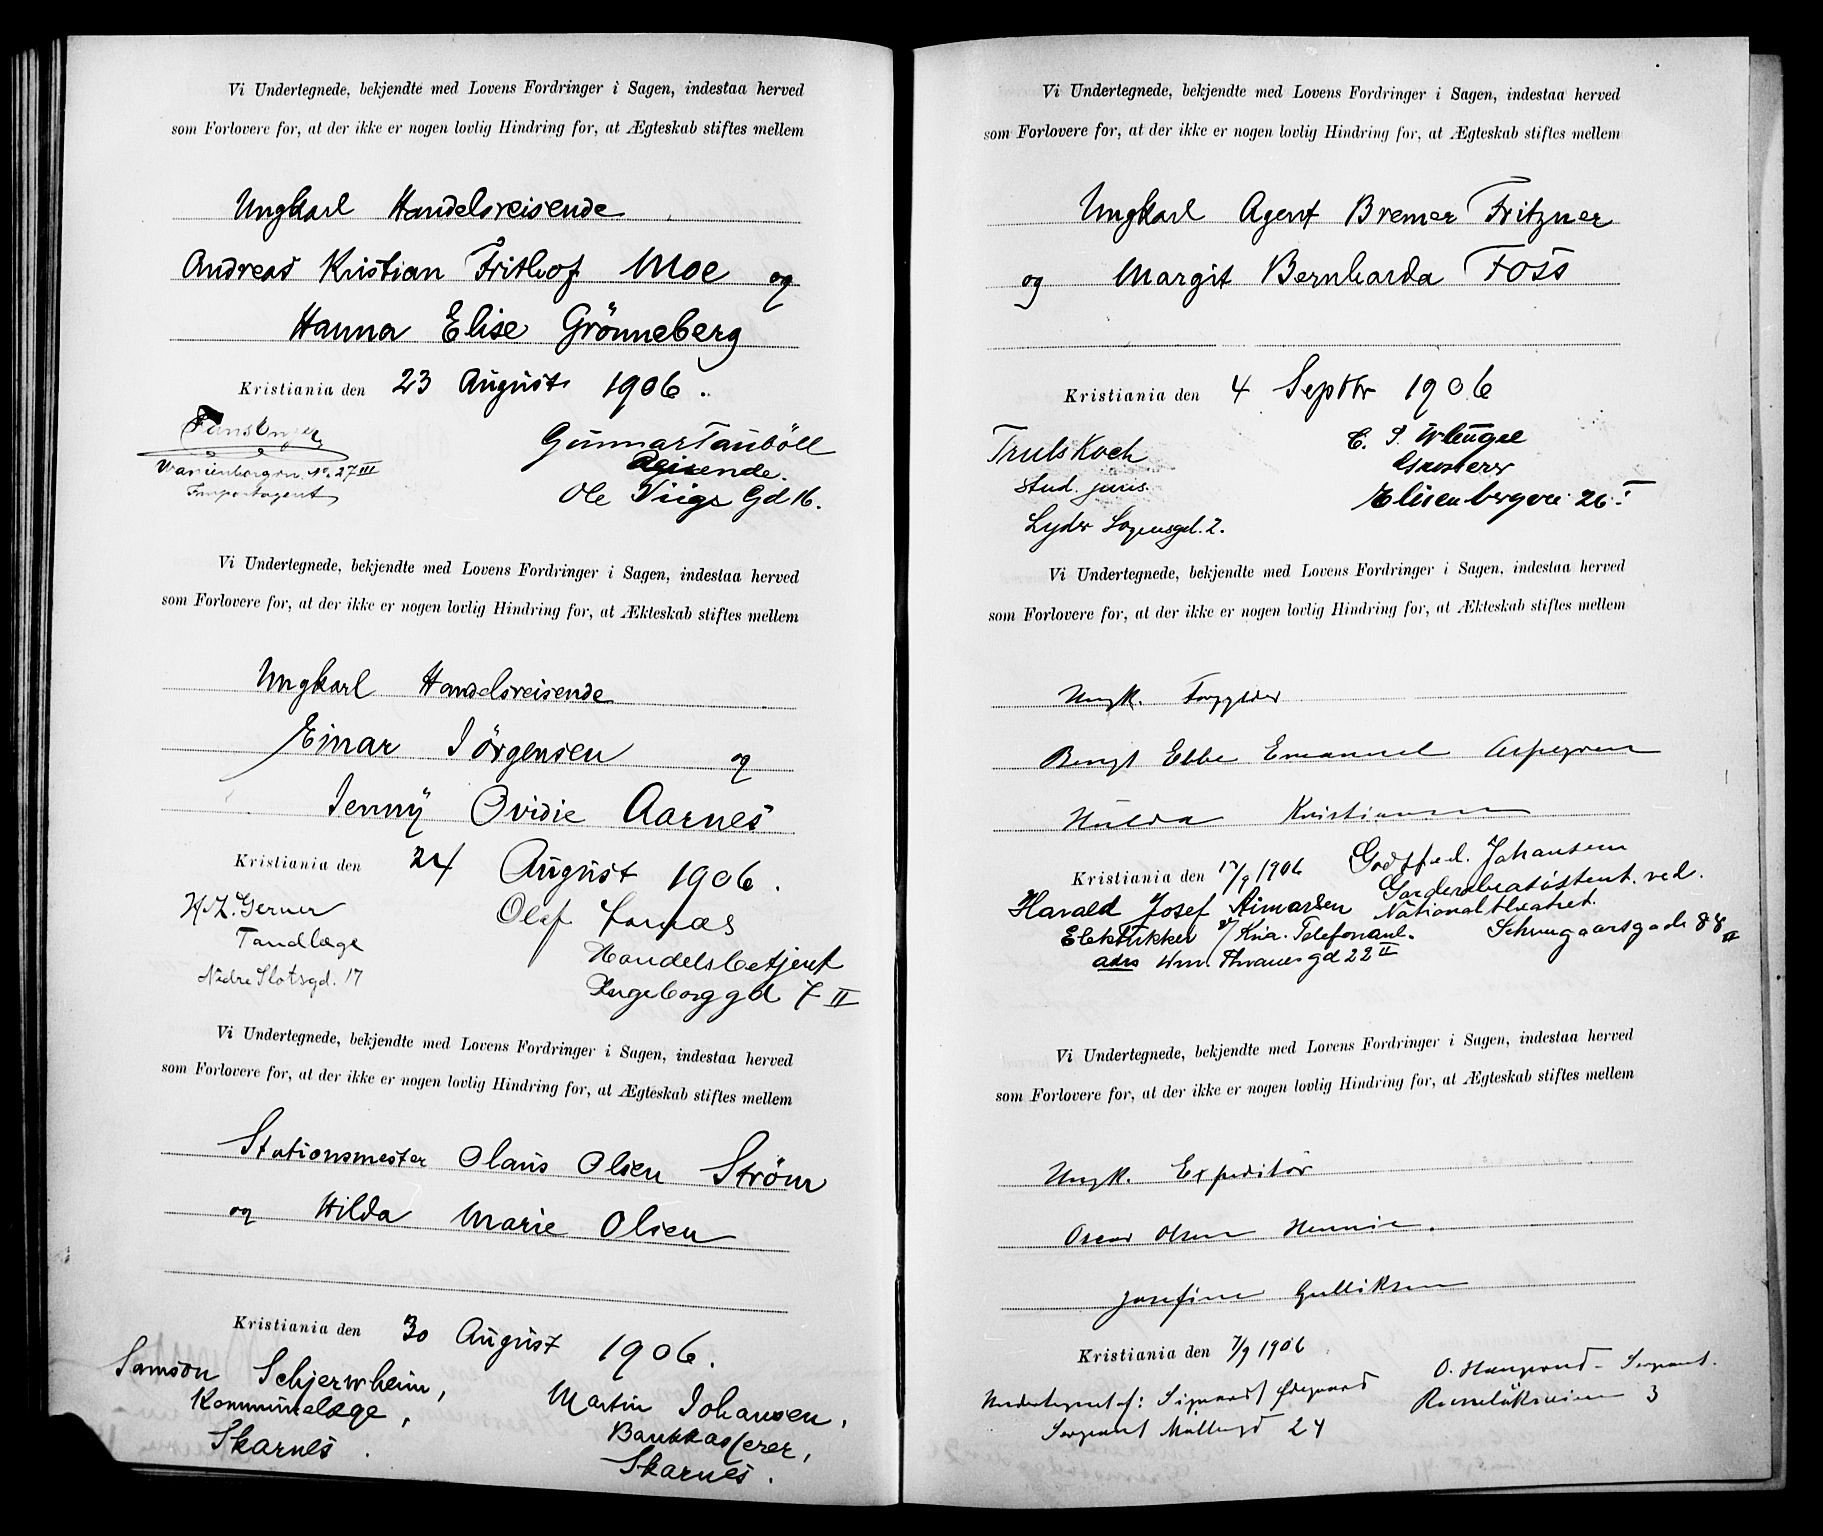 Vi Undertegnede, bekjendte med Lovens Fordringer i Sagen, indestaa herved
som Forlovere for, at der ikke er nogen lovlig Hindring for, at Ægteskab stiftes mellem
Ungkarl Handelsreisende
Andreas Kristian Frithof Moe og
Hanna Elise Grönneberg
Kristiania den 23 August 1906.
No. 27 III
Gunnar Taubøll
Reisende.
Ole Viigs Gd 16.
Vi Undertegnede, bekjendte med Lovens Fordringer i Sagen, indestaa herved
som Forlovere for, at der ikke er nogen lovlig Hindring for, at Ækteskab stiftes mellem
Ungkarl Handelsreisende
Einar Jörgensen og
Jenny Ovidie Aarnes
Kristiania den 24 August 1906.
Gerner
Tandlæge
Nedre Slotsgd. 17
Olaf
Handelsbetjent
Ingeborggd 7 II
Vi Undertegnede, bekjendte med Lovens Fordringer i Sagen, indestaa herved
som Forlovere for, at der ikke er nogen lovlig Hindring for, at Ægteskab stiftes mellem
Stationsmester Olaus Olsen Ström
og Hilda Marie Olsen
Kristiania den 30 August 1906.
Samson Schjerwheim,
Skarnes.
Martin Johansen,
Bankkasserer,
Skarnes.
Vi Undertegnede, bekjendte med Lovens Fordringer i Sagen, indestaa herved
som Forlovere for, at der ikke er nogen lovlig Hindring for, at Ægteskab stiftes mellem
Ungkarl Agent Bremer Fritzner
og Margit Bernharda Foss
Kristiania den 4 Septbr 1906
Truls Koch
stud. juris.
Lyder Sagensgd. 2.
E. S.
Elisenbergvei 26 I
Vi Undertegnede, bekjendte med Lovens Fordringer i Sagen, indestaa herved
som Forlovere for, at der ikke er nogen lovlig Hindring for, at Ækteskab stiftes mellem
Ungk.
Bengt Ebbe Emanuel Aspegren
Hulda Kristiansen
Kristiania den 17/9 1906
Godtfred. Johansen
Garderobeassistent. ved.
Nationaltheatret.
Schweigaardsgade 88 II
Harald Josef
Elektrikker v/ Kria. Telefonanl.
adrs Wm. Thranes gd 22 II
Vi Undertegnede, bekjendte med Lovens Fordringer i Sagen, indestaa herved
som Forlovere for, at der ikke er nogen lovlig Hindring for, at Ægteskab stiftes mellem
Ungk. Expeditör
Oscar Olsen Hennie.
Josefine Gulliksen
Kristiania den 7/9 1906
Undertegnet af: Sigvard Ødegaard
Sergeant Möllergd 24
O. Haugerud - Sergeant.
Ruselökveien 3